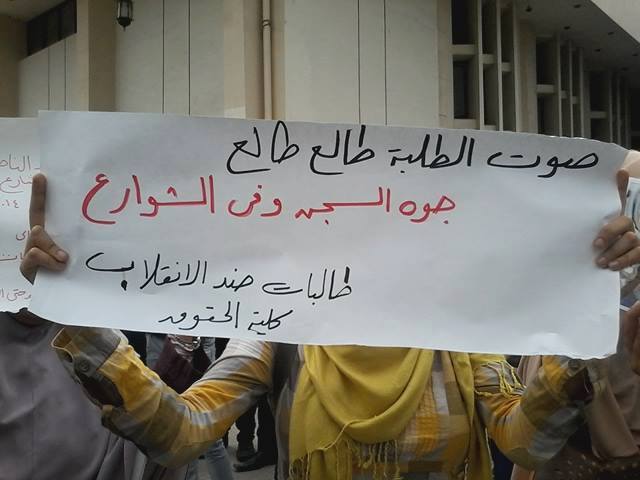 صوت الطلبة طالع طالع
جوه السجن وفى الشوارع
طالبات ضد الانقلاب
كلية الحقوق